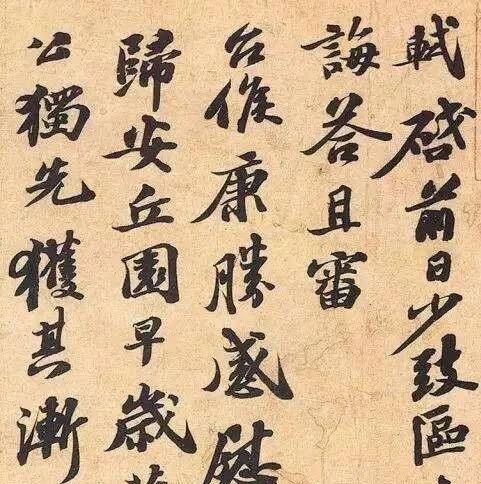 軾啓前日少致區
誨答且審
台候康勝感慰
歸安丘園早歲
公獨先獲其漸